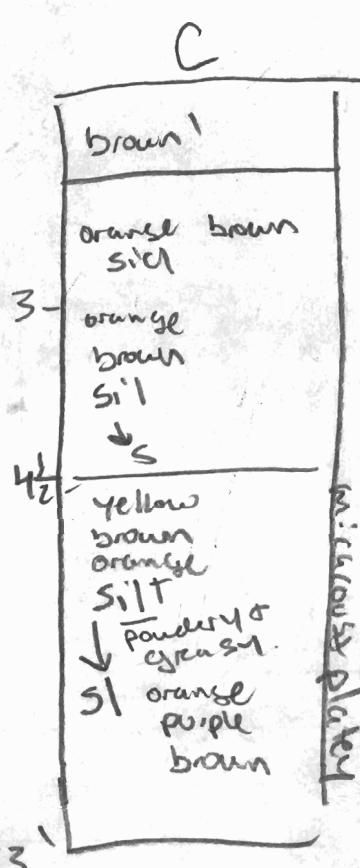 C
brown
orange brown
sicl
3
orange
brown
sil
↓ s
4 1/2
yellow
brown
orange
silt
powdery &
greasy.
↓
sl orange
purple
brown
micaceous & platey